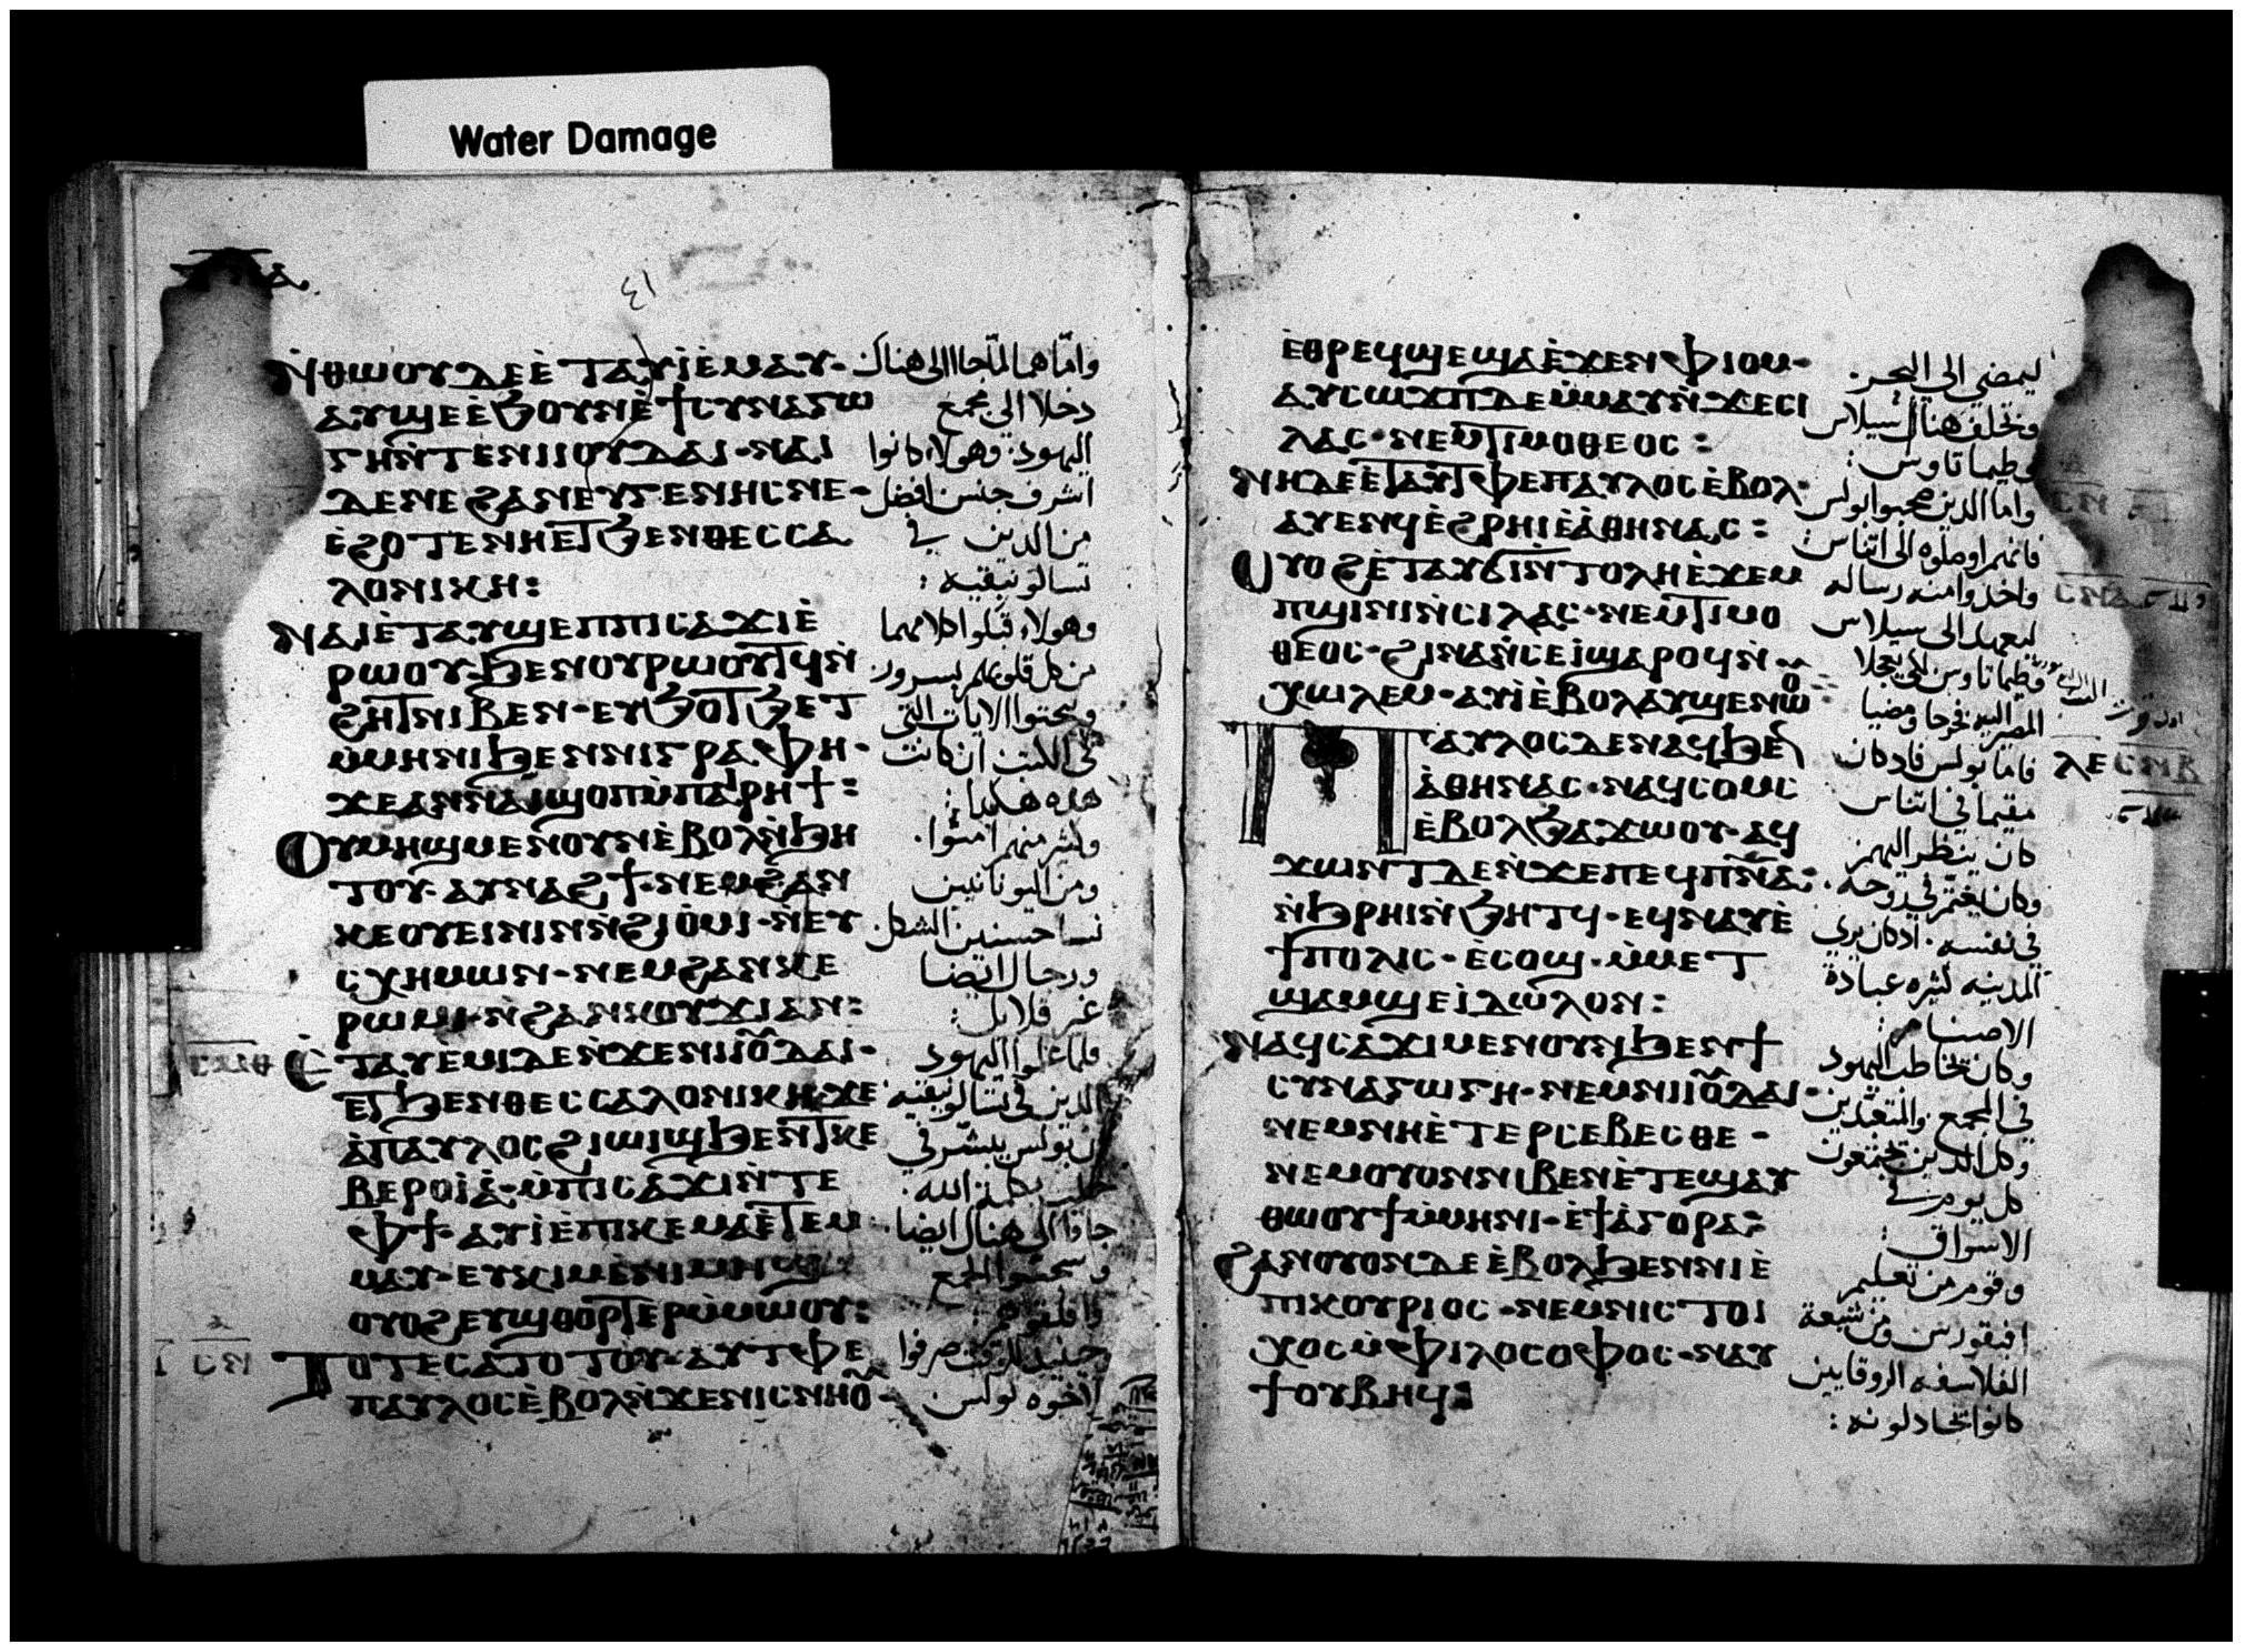 Water Damage
ⲛ̀ⲑⲱⲟⲩ ⲇⲉ ⲉ̀ⲧⲁⲩⲓ̀ ⲉ̀ⲙⲁⲩ·
ⲁⲩϣⲉ ⲉ̀ϧⲟⲩⲛ ⲉ̀ϯⲥⲩⲛⲁⲅⲱ
ⲅⲏ ⲛ̀ⲧⲉ ⲛⲓⲓⲟⲩⲇⲁⲓ· ⲛⲁⲓ
ⲇⲉ ⲛⲉ ϩⲁⲛⲉⲩⲅⲉⲛⲏⲥ ⲛⲉ·
ⲉ̀ϩⲟⲧⲉ ⲛⲏ ⲉⲧϧⲉⲛ ⲑⲉⲥⲥⲁ
ⲗⲟⲛⲓⲕⲏ:
ⲛⲁⲓ ⲉ̀ⲧⲁⲩϣⲉⲡ ⲡⲓⲥⲁϫⲓ ⲉ̀
ⲣⲱⲟⲩ· ϧⲉⲛ ⲟⲩⲣⲱⲟⲩⲧϥ ⲛ̀
ϩⲏⲧ ⲛⲓⲃⲉⲛ· ⲉⲩϧⲟⲧϧⲉⲧ
ⲙ̀ⲙⲏⲛⲓ ϧⲉⲛ ⲛⲓⲅⲣⲁⲫⲏ·
ϫⲉ ⲁⲛ ⲛⲁⲓ ϣⲟⲡ ⲙ̀ⲡⲁⲓⲣⲏϯ:
ⲟⲩⲙⲏϣ ⲙⲉⲛ ⲟⲩⲛ ⲉ̀ⲃⲟⲗ ⲛ̀ϧⲏ
ⲧⲟⲩ· ⲁⲩⲛⲁϩϯ· ⲛⲉⲙ ϩⲁⲛ
ⲕⲉⲟⲩⲉⲓⲛⲓⲛ ⲛ̀ϩⲓⲟ̀ⲙⲓ· ⲛ̀ⲉⲩ
ⲥⲭⲏⲙⲱⲛ· ⲛⲉⲙ ϩⲁⲛⲕⲉ
ⲣⲱⲙⲓ· ⲛ̀ϩⲁⲛⲕⲟⲩϫⲓ ⲁⲛ:
ⲉ̀ⲧⲁⲩⲉⲙⲓ ⲇⲉ ⲛ̀ϫⲉ ⲛⲓⲓⲟ̅ⲇⲁⲓ·
ⲉⲧϧⲉⲛ ⲑⲉⲥⲥⲁⲗⲟⲛⲓⲕⲏ· ϫⲉ
ⲁ̀ ⲡⲁⲩⲗⲟⲥ ϩⲓⲱⲓϣ ϧⲉⲛ ⲧⲕⲉ
ⲃⲉⲣⲟⲓⲁ̀· ⲙ̀ⲡⲓⲥⲁϫⲓ ⲛ̀ⲧⲉ
ⲫϯ· ⲁⲩⲓ̀ ⲉ̀ⲡⲓⲕⲉⲙⲁ ⲉ̀ⲧⲉⲙ
ⲙⲁⲩ· ⲉⲩⲕⲓⲙ ⲉ̀ⲛⲓⲙⲏϣ
ⲟⲩⲟϩ ⲉⲩϣⲑⲟⲣⲧⲉⲣ ⲙ̀ⲙⲱⲟⲩ:
ⲧⲟⲧⲉ ⲥⲁⲧⲟⲧⲟⲩ· ⲁⲩⲧⲫⲉ
ⲡⲁⲩⲗⲟⲥ ⲉ̀ⲃⲟⲗ ⲛ̀ϫⲉ ⲛⲓⲥⲛⲏⲟ̅·
واما هما لما جاا الى هناك
دخلا الى مجمع
اليهود· وهولاء كانوا
اشرف جنس افضل
من الدين في
تسالونيقيه:
وهولاء قبلوا كلامهما
من كل قلوبهم بسرور·
ويبحثوا الايات التى
فى الكتب ان كانت
هده هكدا:
وكثير منهم امنوا·
ومن اليونانيين
نسا حسنين الشكل·
ورجال ايضا
غير قلايل:
فلما علموا اليهود
الدين فى تسالونيقيه
ان بولس يبشر في
حلب بكلمة الله·
جاوا الى هناك ايضا·
الاخوه بولس
ⲉ̀ⲑⲣⲉϥϣⲉ ϣⲁ ⲉ̀ϫⲉⲛ ⲫⲓⲟⲙ·
ⲁⲩⲥⲱϫⲡ ⲇⲉ ⲙ̀ⲙⲁⲩ ⲛ̀ϫⲉ ⲥⲓ
ⲗⲁⲥ· ⲛⲉⲙ ⲧⲓⲙⲟⲑⲉⲟⲥ:
ⲛⲏ ⲇⲉ ⲉ̀ⲧⲁⲩⲧⲫⲉ ⲡⲁⲩⲗⲟⲥ ⲉ̀ⲃⲟⲗ·
ⲁⲩⲉⲛϥ ⲉ̀ϩⲣⲏⲓ ⲉ̀ⲁ̀ⲑⲏⲛⲁⲥ:
ⲟⲩⲟϩ ⲉ̀ⲧⲁⲩϭⲓ ⲛ̀ⲧⲟⲗⲏ ⲉ̀ϫⲉⲙ
ⲡϣⲓⲛⲓ ⲛ̀ⲥⲓⲗⲁⲥ· ⲛⲉⲙ ⲧⲓⲙⲟ
ⲑⲉⲟⲥ· ϩⲓⲛⲁ ⲛ̀ⲥⲉⲓ̀ ϣⲁⲣⲟϥ ⲛ̀
ⲭⲱⲗⲉⲙ· ⲁⲩⲓ̀ ⲉ̀ⲃⲟⲗ ⲁⲩϣⲉⲛⲱⲟ̅
ⲡⲁⲩⲗⲟⲥ ⲇⲉ ⲛⲁϥϧⲉⲛ
ⲁ̀ⲑⲏⲛⲁⲥ· ⲛⲁϥⲥⲟⲙⲥ
ⲉ̀ⲃⲟⲗ ϧⲁϫⲱⲟⲩ· ⲁϥ
ϫⲱⲛⲧ ⲇⲉ ⲛ̀ϫⲉ ⲡⲉϥⲡⲛ̅ⲁ̅:
ⲛ̀ϧⲣⲏⲓ ⲛ̀ϧⲏⲧϥ· ⲉϥⲛⲁⲩ ⲉ̀
ϯⲡⲟⲗⲓⲥ· ⲉ̀ⲥⲟϣ· ⲙ̀ⲙⲉⲧ
ϣⲁⲙϣⲉ ⲓ̀ⲇⲱⲗⲟⲛ:
ⲛⲁϥⲥⲁϫⲓ ⲙⲉⲛ ⲟⲩⲛ ϧⲉⲛ ϯ
ⲥⲩⲛⲁⲅⲱⲅⲏ· ⲛⲉⲙ ⲛⲓⲓⲟ̅ⲇⲁⲓ·
ⲛⲉⲙ ⲛⲏ ⲉ̀ⲧⲉⲣⲥⲉⲃⲉⲥⲑⲉ·
ⲛⲉⲙ ⲟⲩⲟⲛ ⲛⲓⲃⲉⲛ ⲉ̀ⲧⲉϣⲁⲩ
ⲑⲱⲟⲩϯ ⲙ̀ⲙⲏⲛⲓ· ⲉ̀ϯⲁ̀ⲅⲟⲣⲁ:
ϩⲁⲛⲟⲩⲟⲛ ⲇⲉ ⲉ̀ⲃⲟⲗ ϧⲉⲛ ⲛⲓⲉ̀
ⲡⲓⲕⲟⲩⲣⲓⲟⲥ· ⲛⲉⲙ ⲛⲓⲥⲧⲟⲓ
ⲭⲟⲥ ⲙ̀ⲫⲓⲗⲟⲥⲟⲫⲟⲥ· ⲛⲁⲩ
ϯ ⲟⲩⲃⲏϥ:
ليمضى الى البحر·
وتخلف هناك سيلاس
وطيماتاوس:
واما الدين صحبوا بولس
فانهم اوصلوه الى اتناس:
واخدوا منه رساله
ليمضيا الى سيلاس
وطيماتاوس لكى يعجلا
المصير اليه فخرجا ومضيا
فاما بولس فادكان
مقيما في اتناس
كان ينظر اليهم
وكان يغتم في روحه
في نفسه· ادكان يرى
المدينه كثيره عبادة
الاصنام:
وكان يخاطب اليهود
في المجمع والمتعبدين
وكل الدين يجتمعون
كل يوم في
الاسواق:
وقوم من تعليم
افيقورس ومن شيعة
الفلاسفه الروقايين
كانوا يجادلونه: